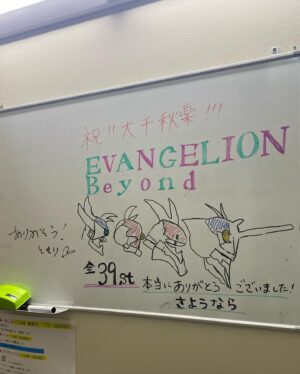 祝!!大千秋楽!!!
EVANGELION
Beyond
ありがとう!
全39st
本当にありがとうございました!
さようなら